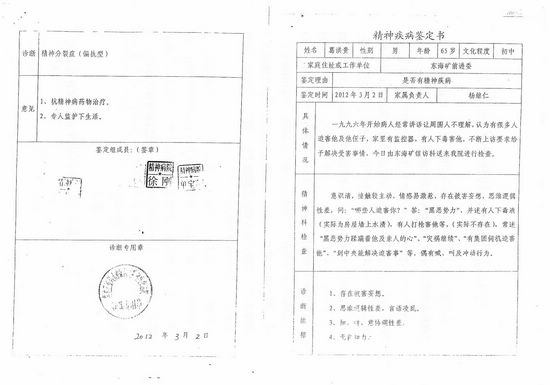 诊断 精神分裂症（偏执型）
意见
1、抗精神病药物治疗。
2、专人监护下生活。
鉴定组成员：（签章）
精神病院
徐刚
诊断专用章
2012 年 3 月 2 日
精神疾病鉴定书
姓名 葛洪贵 性别 男 年龄 65 岁 文化程度 初中
家庭住址或工作单位 东海矿前进委
鉴定理由 是否有精神疾病
鉴定时间 2012 年 3 月 2 日 家属负责人 杨继仁
具体情况
一九九六年开始病人经常讲话让周围人不理解，认为有很多人
迫害他及他侄子，家里有监控器，有人下毒害他，不断上访要求给
予解决受害事情，今日由东海矿信访科送来我院进行检查。
精神科检查
意识清，接触较主动，情感易激惹，存在被害妄想，思维逻辑
性差，问：“哪些人迫害你？”答：“黑恶势力”，并述有人下毒液
（实际为房屋墙上水渍），有人打枪害他等，（实际不存在），常述
“黑恶势力蹂躏着他及亲人的心”、“灾祸继续”、“有集团伺机迫害
他”、“到中央能解决迫害事”等，偶有喊、叫及冲动行为。
诊断依据
1、存在被害妄想。
2、思维逻辑性差，言语凌乱。
3、知、、意协调性差。
4、无自知力。